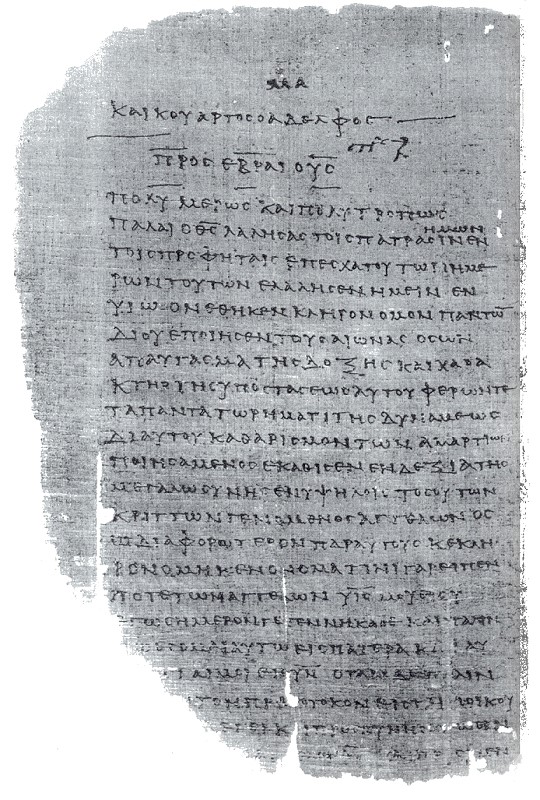 ΜΑ
ΚΑΙ ΚΟΥΑΡΤΟϹ Ο ΑΔΕΛΦΟϹ
ΠΡΟϹ ΕΒΡΑΙΟΥϹ
ΠΟΛΥΜΕΡΩϹ ΚΑΙ ΠΟΛΥΤΡΟΠΩϹ
ΗΜΩΝ
ΠΑΛΑΙ Ο Θ̅Ϲ̅ ΛΑΛΗϹΑϹ ΤΟΙϹ ΠΑΤΡΑϹΙΝ ΕΝ
ΤΟΙϹ ΠΡΟΦΗΤΑΙϹ ΕΠ ΕϹΧΑΤΟΥ ΤΩΝ ΗΜΕ
ΡΩΝ ΤΟΥΤΩΝ ΕΛΑΛΗϹΕΝ ΗΜΕΙΝ ΕΝ
ΥΙΩ ΟΝ ΕΘΗΚΕΝ ΚΛΗΡΟΝΟΜΟΝ ΠΑΝΤΩ̅
ΔΙ ΟΥ ΕΠΟΙΗϹΕΝ ΤΟΥϹ ΑΙΩΝΑϹ ΟϹ ΩΝ
ΑΠΑΥΓΑϹΜΑ ΤΗϹ ΔΟΞΗϹ ΚΑΙ ΧΑΡΑ
ΚΤΗΡ ΤΗϹ ΥΠΟϹΤΑϹΕΩϹ ΑΥΤΟΥ ΦΕΡΩΝ ΤΕ
ΤΑ ΠΑΝΤΑ ΤΩ ΡΗΜΑΤΙ ΤΗϹ ΔΥΝΑΜΕΩϹ
ΔΙ ΑΥΤΟΥ ΚΑΘΑΡΙϹΜΟΝ ΤΩΝ ΑΜΑΡΤΙΩΝ
ΠΟΙΗϹΑΜΕΝΟϹ ΕΚΑΘΙϹΕΝ ΕΝ ΔΕΞΙΑ ΤΗϹ
ΜΕΓΑΛΩϹΥΝΗϹ ΕΝ ΥΨΗΛΟΙϹ ΤΟϹΟΥΤΩΝ
ΚΡΙΤΤΩΝ ΓΕΝΟΜΕΝΟϹ ΑΓΓΕΛΩΝ ΟϹ
Ω ΔΙΑΦΟΡΩΤΕΡΟΝ ΠΑΡ ΑΥΤΟΥϹ ΚΕΚΛΗ
ΡΟΝΟΜΗΚΕΝ ΟΝΟΜΑ ΤΙΝΙ ΓΑΡ ΕΙΠΕΝ
ΠΟΤΕ ΤΩΝ ΑΓΓΕΛΩΝ Υ̅Ϲ̅ ΜΟΥ ΕΙ ϹΥ
ΕΓΩ ϹΗΜΕΡΟΝ ΓΕΓΕΝΝΗΚΑ ϹΕ ΚΑΙ ΠΑΛΙΝ
ΑΥΤΩ ΕΙϹ ΠΑΤΕΡΑ ΚΑΙ ΑΥ
ΕϹΤΑΙ ΜΟΙ ΕΙϹ Υ̅Ν̅ ΟΤΑΝ ΔΕ ΠΑΛΙΝ
ΤΟΝ ΠΡΩΤΟΤΟΚΟΝ ΕΙϹ ΤΗΝ ΟΙΚΟΥ